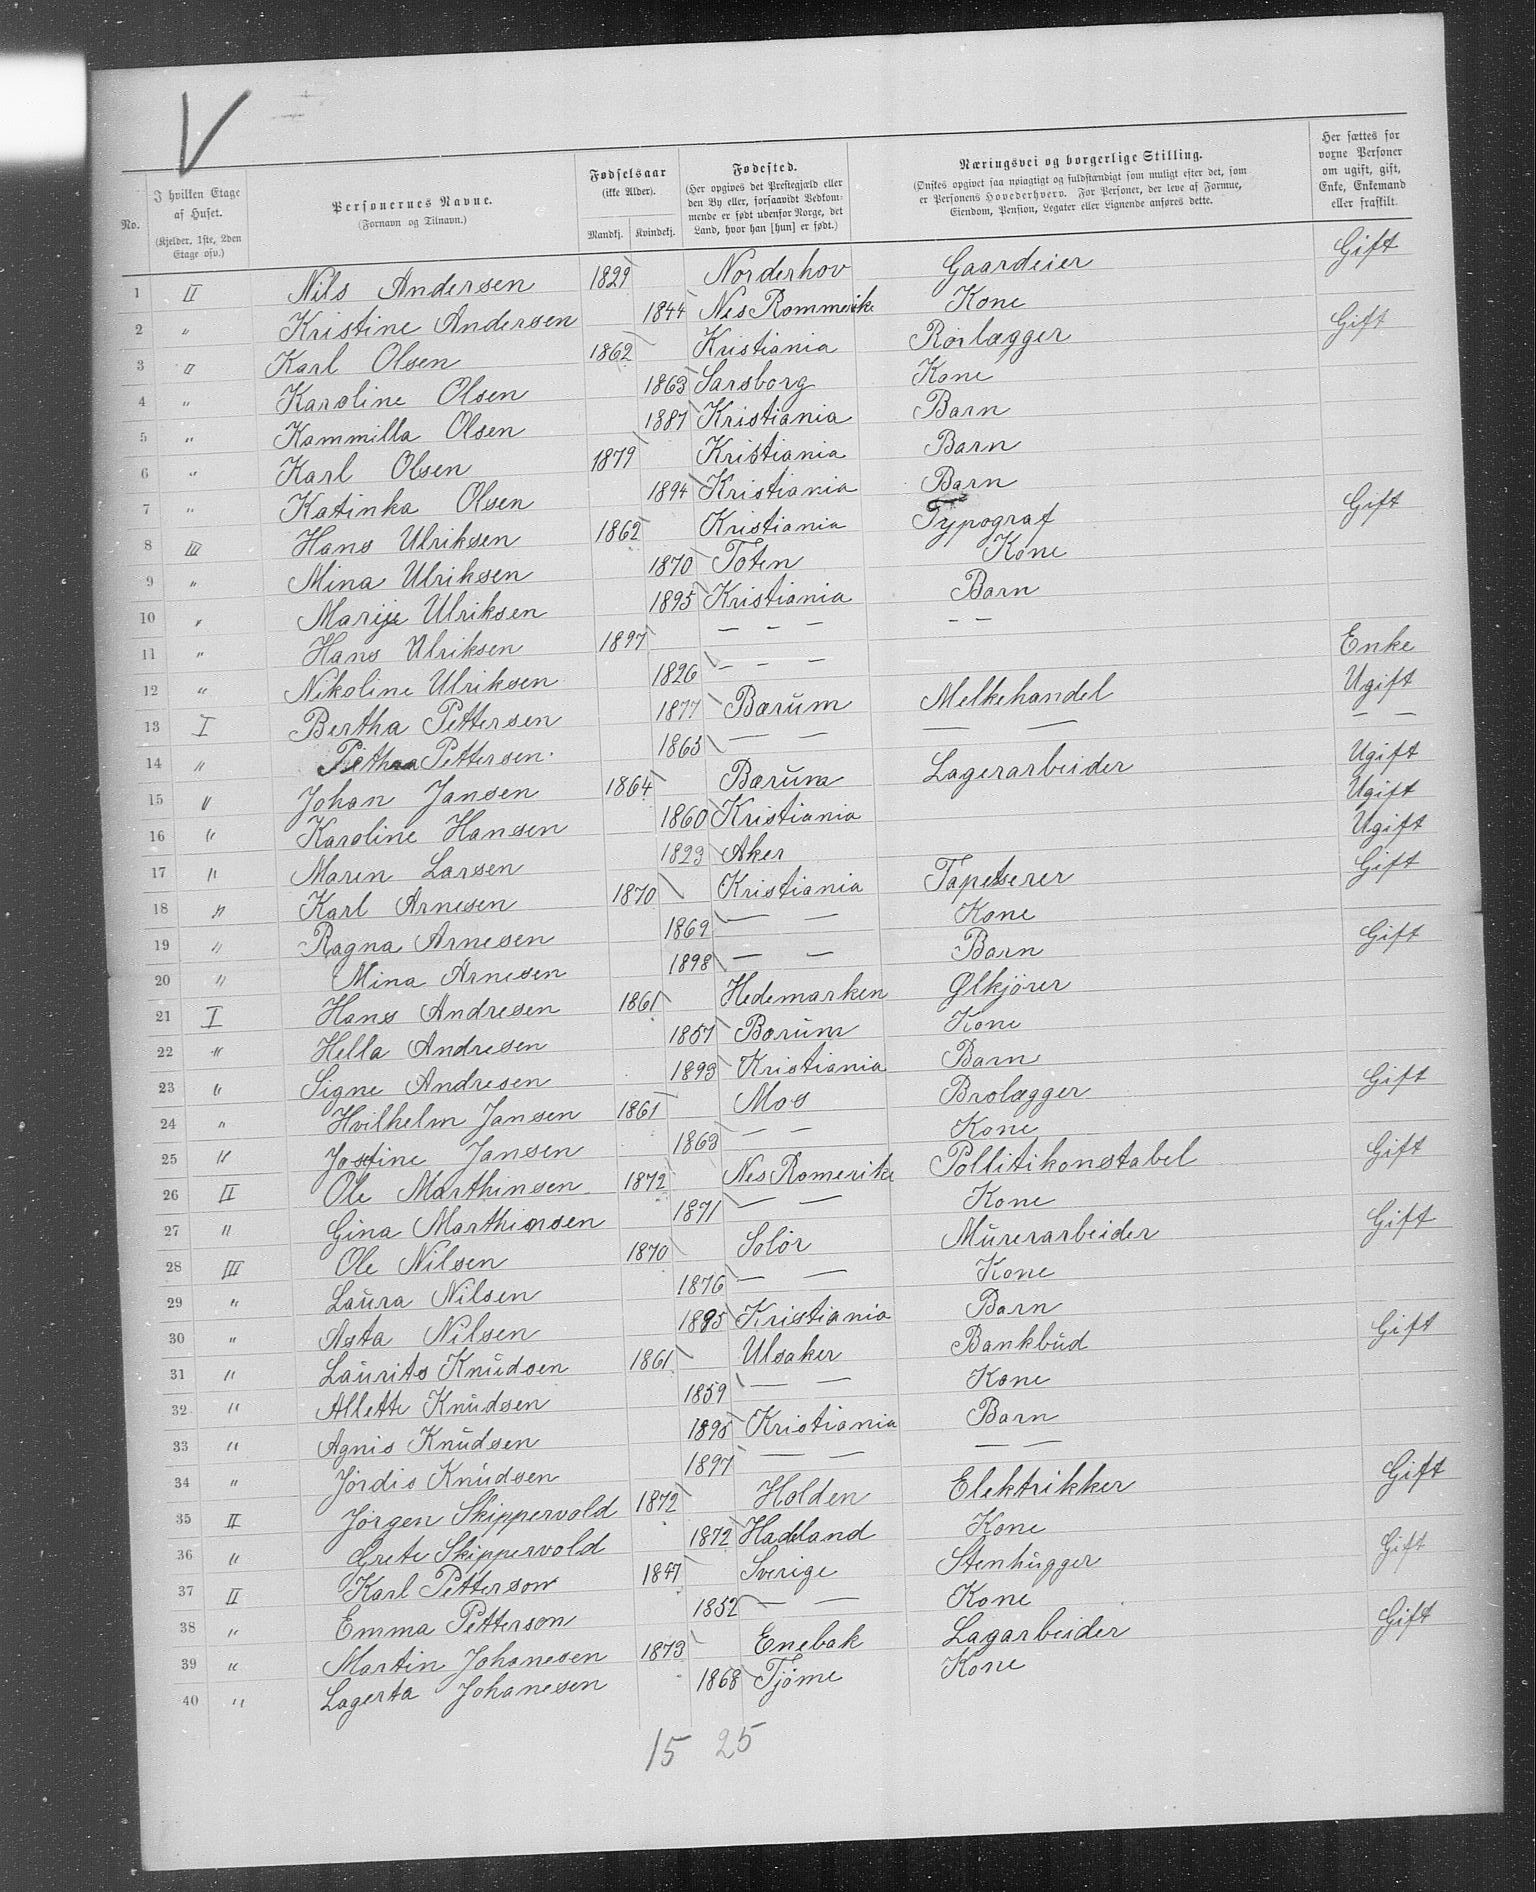 V
No.
I hvilken Etage af Huset.
(Kjelder, 1ste, 2den Etage osv.)
Personernes Navne.
(Fornavn og Tilnavn.)
Fødselsaar
(ikke Alder).
Mandkj. Kvindekj.
Fødested.
(Her opgives det Prestegjæld eller den By eller, forsaavidt Vedkommende er født udenfor Norge, det Land, hvor han [hun] er født.)
Næringsvei og borgerlige Stilling.
(Ønskes opgivet saa nøiagtigt og fuldstændigt som muligt efter det, som er Personens Hovederhverv. For Personer, der leve af Formue, Eiendom, Pension, Legater eller Lignende anføres dette.
Her sættes for voxne Personer om ugift, gift, Enke, Enkemand eller fraskilt.
1 II Nils Andersen 1829 Norderhov Gaardeier Gift
2 " Kristine Andersen 1844 Nes Rommerike Kone
3 " Karl Olsen 1862 Kristiania Rörlægger Gift
4 " Karoline Olsen 1863 Sarsborg Kone
5 " Kammilla Olsen 1887 Kristiania Barn
6 " Karl Olsen 1879 Kristiania Barn
7 " Katinka Olsen 1894 Kristiania Barn
8 III Hans Ulriksen 1862 Kristiania Typograf Gift
9 " Mina Ulriksen 1870 Toten Kone
10 " Marije Ulriksen 1895 Kristiania Barn
11 " Hans Ulriksen 1897 — — — — —
12 " Nikoline Ulriksen 1826 — — — Enke
13 I Bertha Pettersen 1877 Bærum Melkehandel Ugift
14 " Pettersen 1863 — — — — — —
15 " Johan Jansen 1864 Bærum Lagerarbeider Ugift
16 " Karoline Hansen 1860 Kristiania Ugift
17 " Maren Larsen 1823 Aker Ugift
18 " Karl Arnesen 1870 Kristiania Tapetserer Gift
19 " Ragna Arnesen 1869 — — Kone
20 " Mina Arnesen 1898 — — Barn Gift
21 I Hans Andresen 1861 Hedemarken Ølkjörer
22 " Hella Andresen 1857 Bærum Kone
23 " Signe Andresen 1893 Kristiania Barn
24 " Hvilhelm Jansen 1861 Mos Brolægger Gift
25 " Jostine Jansen 1863 — — Kone
26 II Ole Marthinsen 1872 Nes Romerike Pollitikonstabel Gift
27 " Gina Marthinsen 1871 — — Kone
28 III Ole Nilsen 1870 Solör Murerarbeider Gift
29 " Laura Nilsen 1876 — — Kone
30 " Asta Nilsen 1895 Kristiania Barn
31 " Laurits Knudsen 1861 Ulsaker Bankbud Gift
32 " Allette Knudsen 1859 — — Kone
33 " Agnis Knudsen 1895 Kristiania Barn
34 " Jördis Knudsen 1897 — — — —
35 II Jörgen Skippervold 1872 Holden Elektrikker Gift
36 " Grete Skippervold 1872 Hadeland Kone
37 II Karl Petterson 1847 Sverige Stenhugger Gift
38 " Emma Petterson 1852 — — Kone
39 " Martin Johanesen 1873 Enebak Lagarbeider Gift
40 " Lagerta Johanesen 1868 Tjöme Kone
15 25